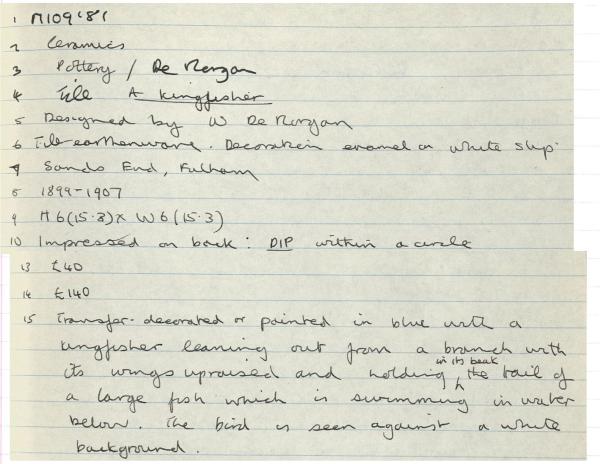 1 M109'81
2 Ceramics
3 Pottery / De Morgan
4 Tile A kingfisher
5 Designed by W De Morgan
6 Tile earthenware. Decorated in enamel on white slip.
7 Sands End, Fulham
8 1899-1907
9 H 6 (15.3) x W 6 (15.3)
10 Impressed on back: DIP within a circle
13 £40
14 £140
15 Transfer-decorated or painted in blue with a
kingfisher leaning out from a branch with
its wings upraised and holding in its beak the tail of
a large fish which is swimming in water
below. The bird is seen against a white
background.